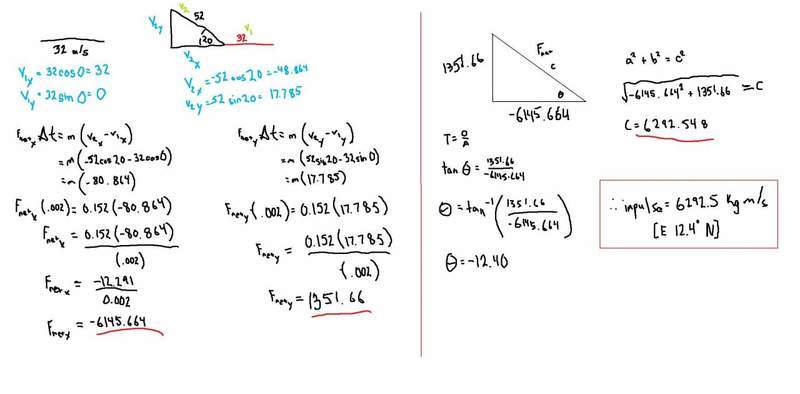 V₂
52
V₂y
20
32
V₁
V₂x
32 m/s
V₁x = 32cos0 = 32
V₁y = 32sin0 = 0
V₂x = -52cos20 = -48.864
V₂y = 52 sin20 = 17.785
Fnetx Δt = m(V₂x - V₁x)
= m(-52cos20 - 32cos0)
= m(-80.864)
Fnetx (.002) = 0.152(-80.864)
Fnetx = 0.152(-80.864)
(.002)
Fnetx = -12.291
0.002
Fnetx = -6145.664
Fnety Δt = m(V₂y - V₁y)
= m(52sin20 - 32sin0)
= m(17.785)
Fnety (.002) = 0.152(17.785)
Fnety = 0.152(17.785)
(.002)
Fnety = 1351.66
1351.66
Fnet
c
θ
-6145.664
T = O/A
tanθ = 1351.66/-6145.664
θ = tan⁻¹(1351.66/-6145.664)
θ = -12.40
a² + b² = c²
√-6145.664² + 1351.66 = C
C = 6292.548
∴ inpulse = 6292.5 kg m/s
[E 12.4° N]